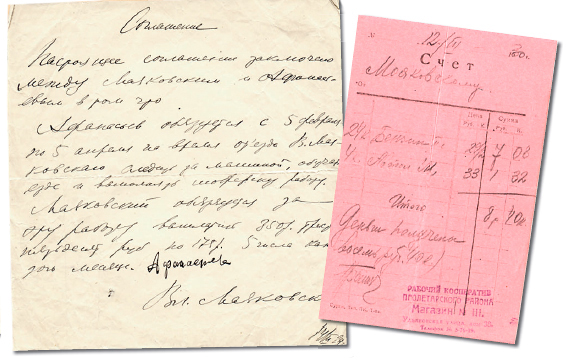 Соглашение
Настоящее соглашение заключено
между Маяковским и Афанась-
евым в том что
Афанасьев обязуется с 5 февраля
по 5 апреля на время от'езда В. Мая-
ковского следить за машиной, обуч
езде и выполнять шоферскую работу.
Маяковский обязуется за
эту работу выплатить 350 р.
рублей по 175 р. 5 числа каж-
дого месяца. Афанасьев
Вл. Маяковск
№
12/IV
Счет
Маяковскому
Цена
Сумма
Р. К.
24
7 08
4
33 1 32
Итого
8 р. 40 к.
Деньги получены
восемь р. 40 к
РАБОЧИЙ КООПЕРАТИВ
ПРОЛЕТАРСКОГО РАЙОНА
Магазин № 111.